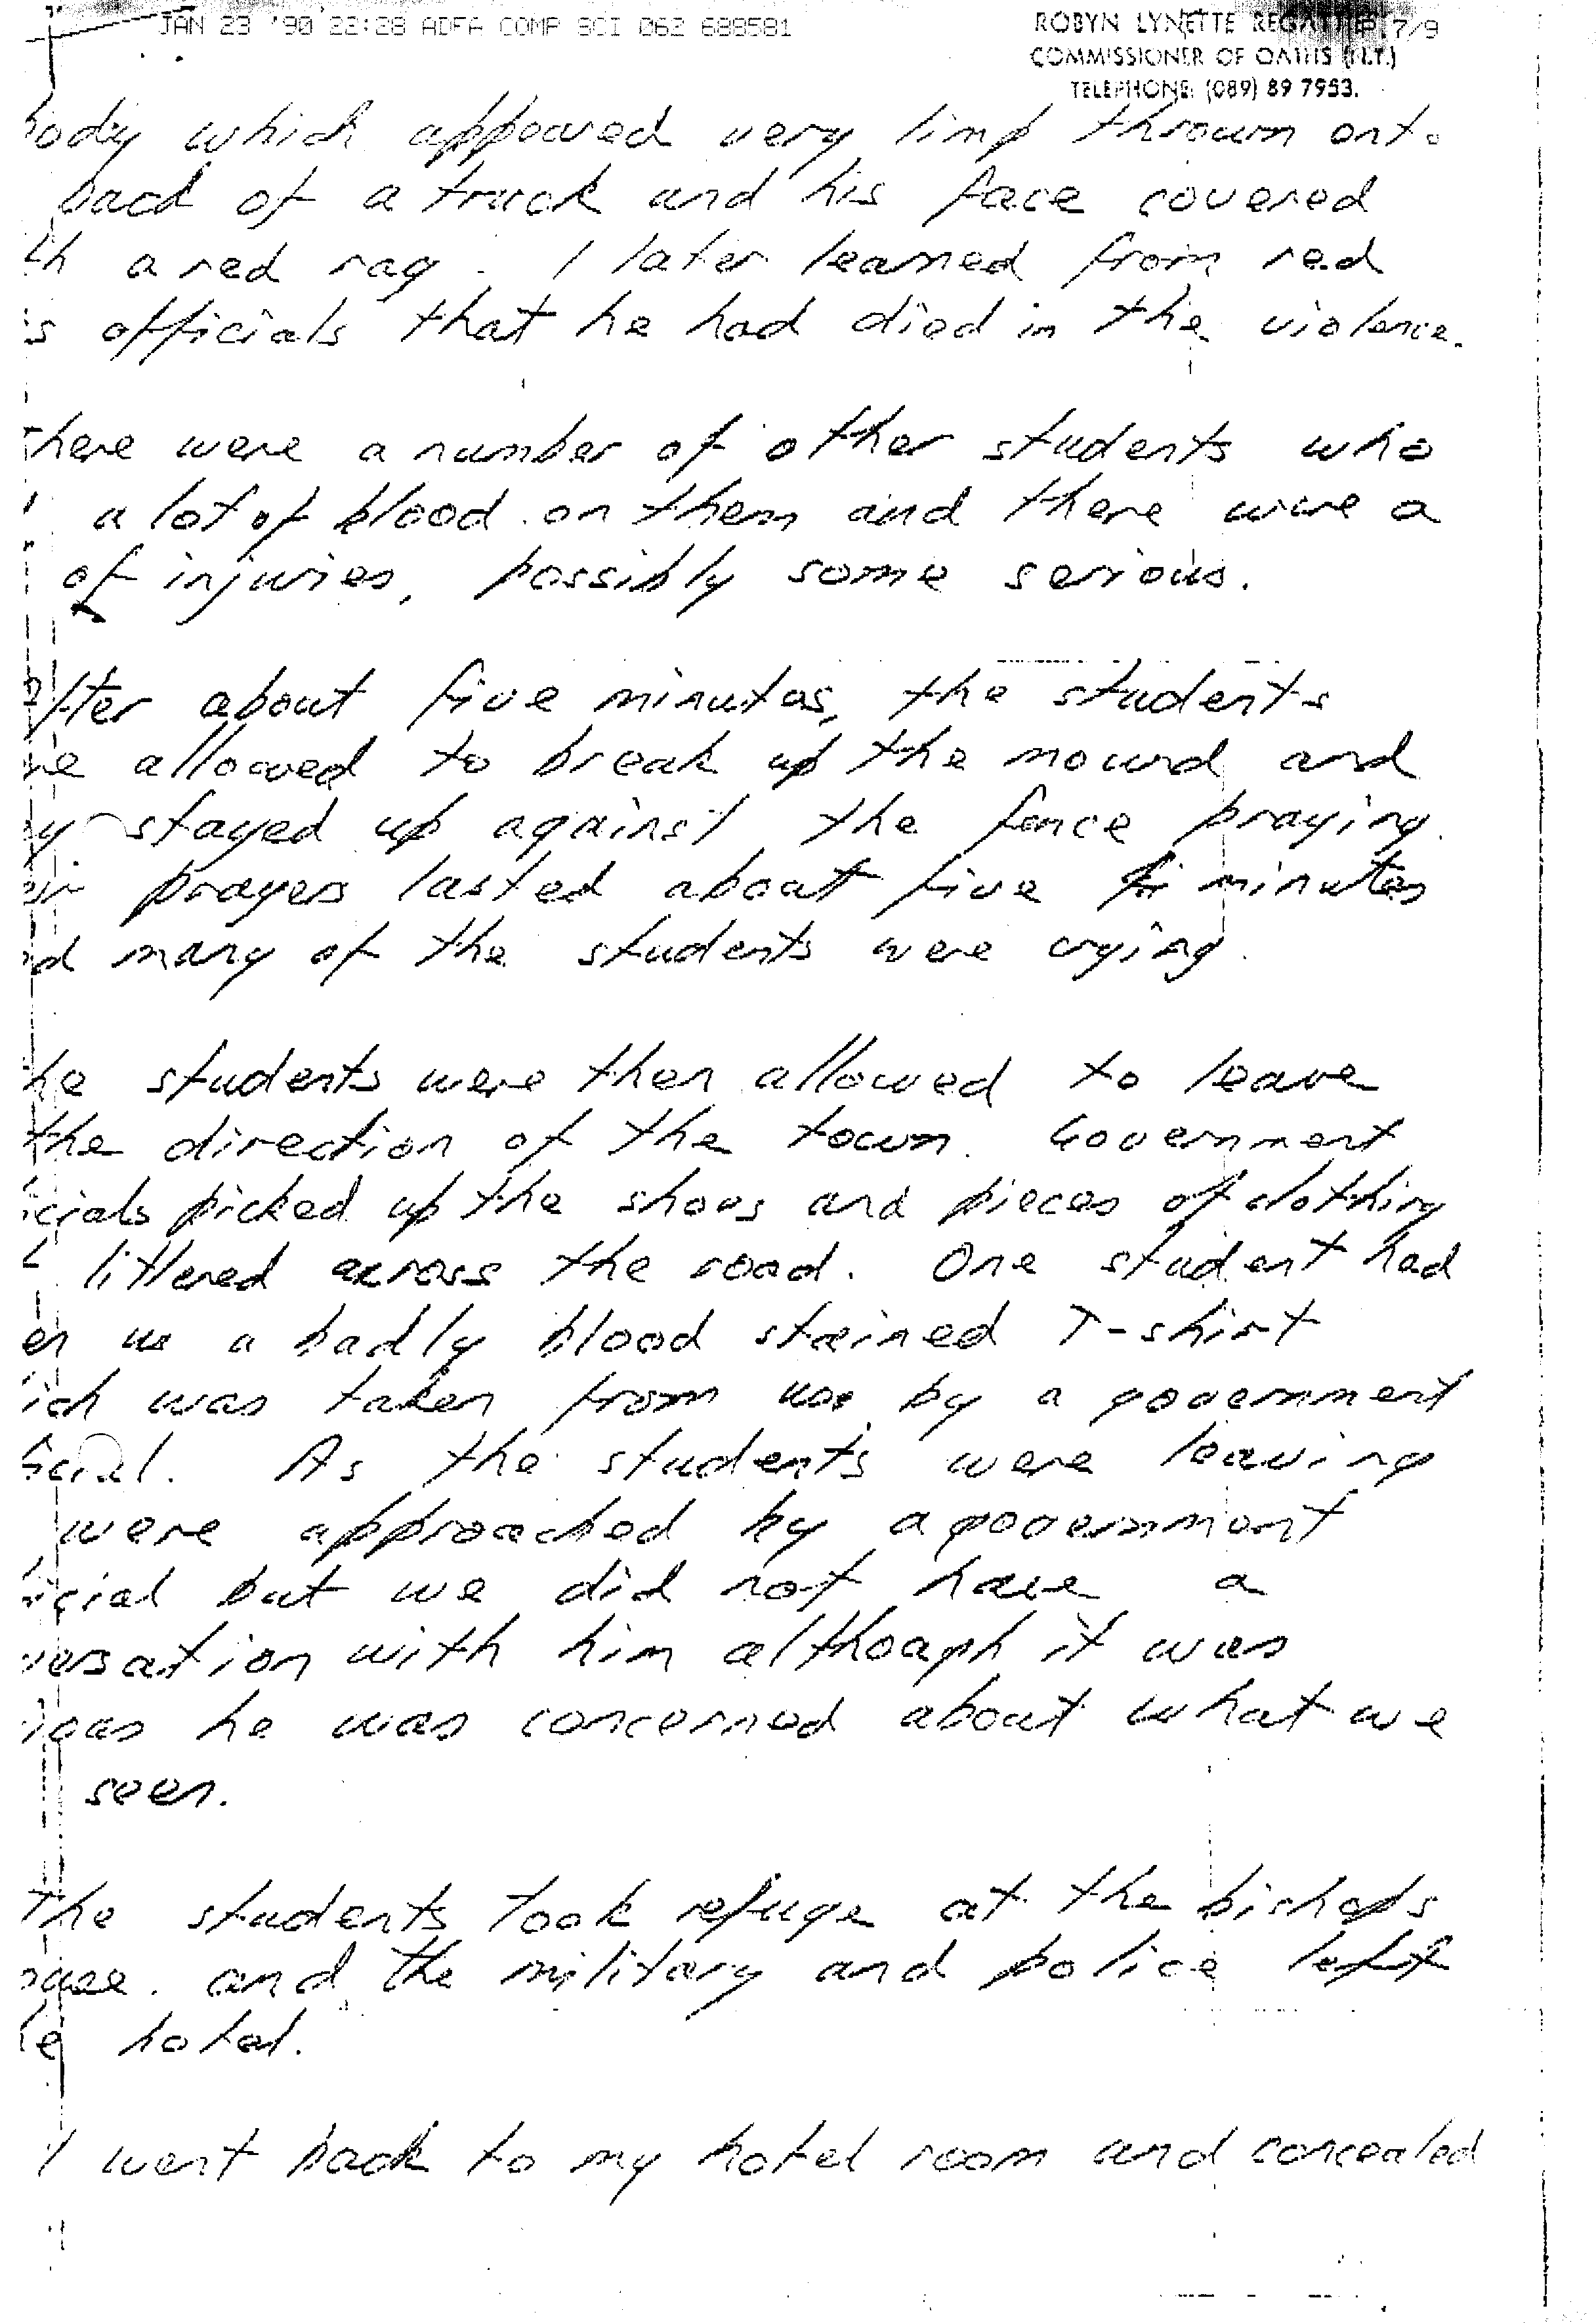 JAN 23 '90 22:28 ADFA COMP SCI 062 688581 P.7/9
ROBYN LYNETTE
COMMISSIONER OF OATHS (N.T.)
TELEPHONE: (089) 89 7953.
body which appeared very limp thrown onto
back of a truck and his face covered
th a red rag. I later learned from red
s officials that he had died in the violence.
There were a number of other students who
a lot of blood on them and there were a
of injuries, possibly some serious.
After about five minutes, the students
re allowed to break up the mound and
y stayed up against the fence praying.
eir prayers lasted about five minutes
nd many of the students were crying.
he students were then allowed to leave
the direction of the town. Government
icials picked up the shoes and pieces of clothing
t littered across the road. One student had
en us a badly blood stained T-shirt
ich was taken from us by a government
ficial. As the students were leaving
were approached by a government
icial but we did not have a
versation with him although it was
ious he was concerned about what we
seen.
The students took refuge at the bishops
ouse. and the military and police left
he hotel.
I went back to my hotel room and concealed